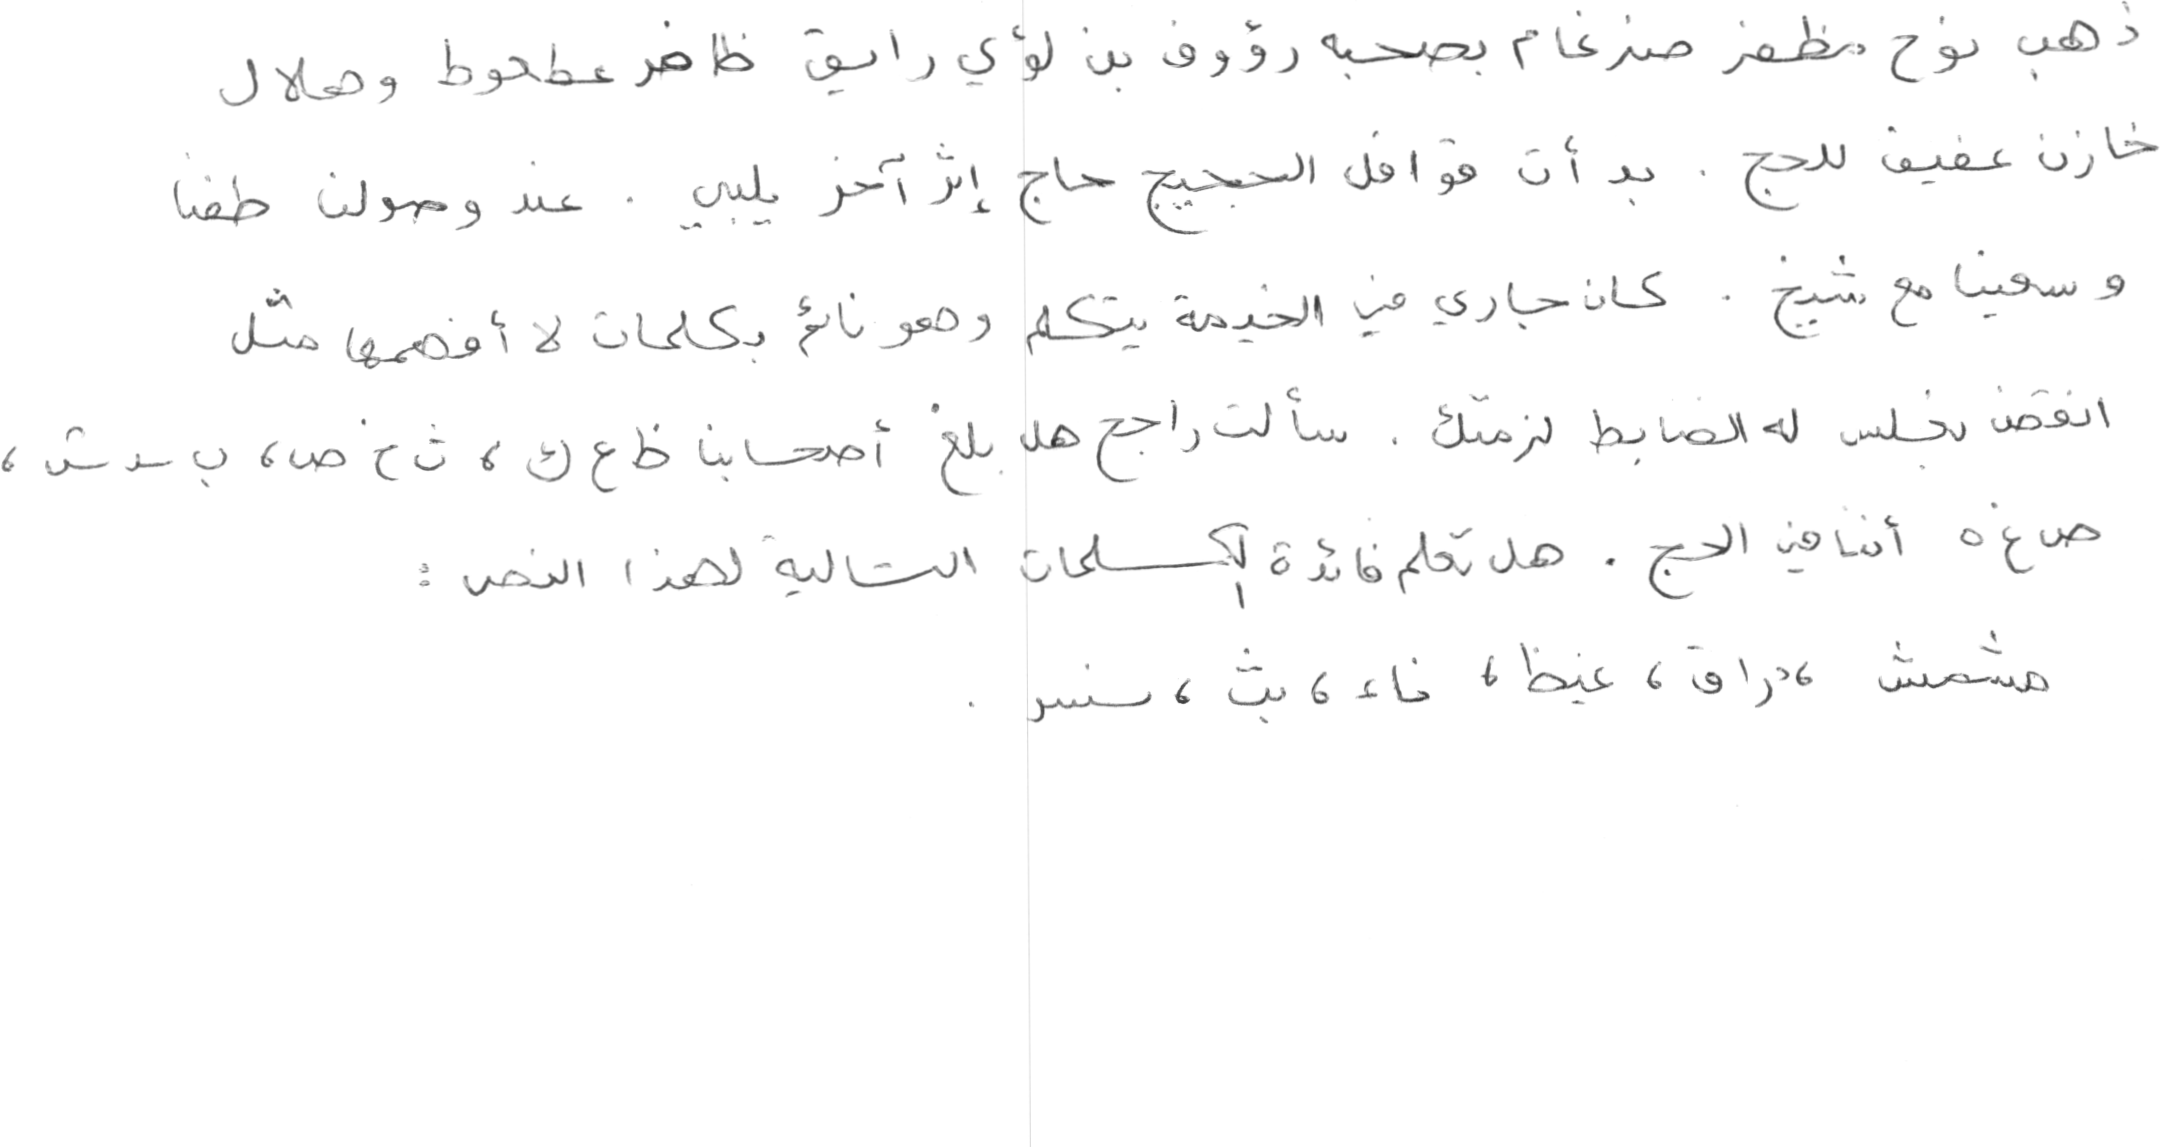 ذهب نوح مظفر ضرغام بصحبه رؤوف بن لؤي رايق ظافر عطعوط وهلال
خازن عفيف للحج . بدأت قوافل الحجيج حاج إثر آخر يلبي . عند وصولنا طفنا
وسعينا مع شيخ . كان جاري في الخيمة يتكلم وهو نائم بكلمات لا أفهمها مثل
انفقض بجلس له الضابط لزمتك . سألت راجح هل بلغ أصحابنا ظ ع ك ، ث خ ص ، ب س ش ،
ص غ ه أننا في الحج . هل تعلم فائدة الكلمات التالية لهذا النص :
مشمش ، دراق ، غيظ ، فاء ، بث ، نسر .